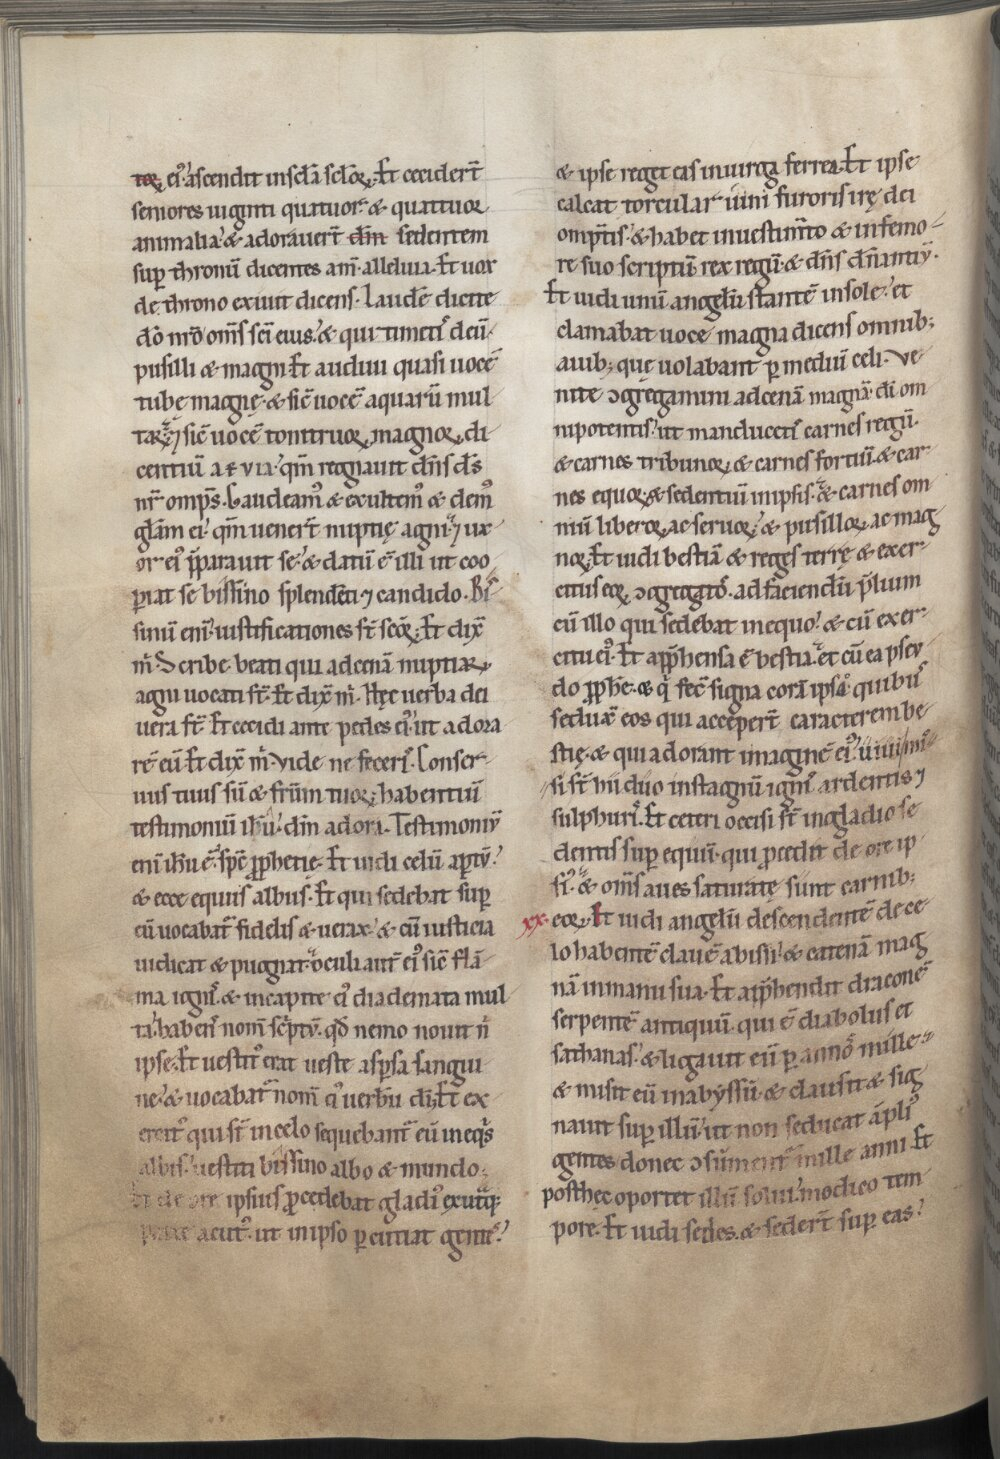 toꝝ ei᾽ ascendit in scl̄a scl̄oꝝ. Et cecider̄t
seniores uiginti quatuor. & quattuor
animalia. & adorauer̄t dn̄m sedentem
sup̱ thronū dicentes am̄. alleluia. Et uox
de throno exiuit dicens. Laudē dicite
dō nr̄o om̄s sc̄i eius. & qui timetis deū.
pusilli & magni. Et audiui quasi uocē
tubę magnę. & sic̄ uocē aquarū mul
taꝝ ⁊ sic̄ uocē tonitruoꝝ magnoꝝ di
centiū aeuia. qm̄ regnauit dn̄s ds̄
nr̄ omp̄s. Gaudeam᾽ & exultem᾽ & dem᾽
glām ei. qm̄ uener̄t nuptię agni. ⁊ ux
or ei᾽ p̄parauit se. & datū ē illi ut coo
ꝑiat se bissino splendēti ⁊ candido. Bis
sinū eni᾽ iustificationes st̄ sc̄oꝝ. Et dix̄
m̄. Scribe. beati qui ad cenā nuptiaꝝ
agni uocati st̄. Et dix̄ m̄. Hęc uerba dei
uera st̄. Et cecidi ante pedes ei᾽ ut adora
rē eū. Et dix̄ m̄. Vide ne feceris. Conser
uus tuus sū & frūm tuoꝝ habentiū
testimoniū ih̄u. dm̄ adora. Testimoniū
eni ih̄u ē sp̄c ꝓphetię. Et uidi celū aꝑtū.
& ecce equus albus. Et qui sedebat sup̱
eū uocabat᾽ fidelis & uerax. & cū iusticia
iudicat & pugnat. oculi aut̄ ei᾽ sic̄ flā
ma ignis. & in capite ei᾽ diademata mul
ta. habens nom̄ sc̄ptū. qd̄ nemo nouit n̄
ipse. Et uestit᾽ erat ueste asꝑsa sangui
ne. & uocabat᾽ nom̄ ei᾽ uerbū dī. Et ex
ercit᾽ qui st̄ in celo sequebant᾽ eū in eq᾽s
albis. uestiti bissino albo & mundo.
Et de ore ipsius ꝓcedebat gladi᾽ ex utraq;
parte acut᾽. ut in ipso ꝑcutiat gentes.
& ipse reget eas in uirga ferrea. Et ipse
calcat torcular uini furoris irę dei
omp̄tis. & habet in uestim̄to & in femo
re suo scriptū rex regū. & dn̄s dn̄antiū.
Et uidi unū angelū stantē in sole. et
clamabat uoce magna dicens omnib;
auib; quę uolabant ꝑ mediū celi. Ve
nite ↄgregamini ad cenā magnā dī om
nipotentis. ut manducetis carnes regū.
& carnes tribunoꝝ & carnes fortiū. & car
nes equoꝝ & sedentiū in ipsis. & carnes om
niū liberoꝝ ac seruoꝝ & pusilloꝝ ac mag
noꝝ. Et uidi bestiā & reges terrę & exer
citus eoꝝ ↄgregatos ad faciendū p̄lium
cū illo qui sedebat in equo. & cū exer
citu ei᾽. Et app̄hensa ē bestia. et cū ea pseu
do ꝓph̄e. & q᾽ fec̄ signa corā ipsa. quibus
sedux̄ eos qui acceper̄t caracterem be
stię. & qui adorant imaginē ei᾽. uiui mis
si st̄ hii duo in stagnū ignis ardentis ⁊
sulphuris. Et ceteri occisi st̄ in gladio se
dentis sup̱ equū. qui ꝓcedit de ore ip
si᾽. & om̄s aues saturatę sunt carnib;
xx. eoꝝ. Et uidi angelū descendentē de ce
lo habentē clauē abissi & catenā mag
nā in manu sua. Et app̄hendit draconē
serpentē antiquū. qui ē diabolus et
sathanas. & ligauit eū ꝑ annos mille
& misit eū in abyssū. & clausit & sig
nauit sup̱ illū. ut non seducat ampli᾽
gentes donec ↄsument᾽ mille anni. Et
post hęc oportet illū solui modico tem
pore. Et uidi sedes. & seder̄t sup̱ eas.